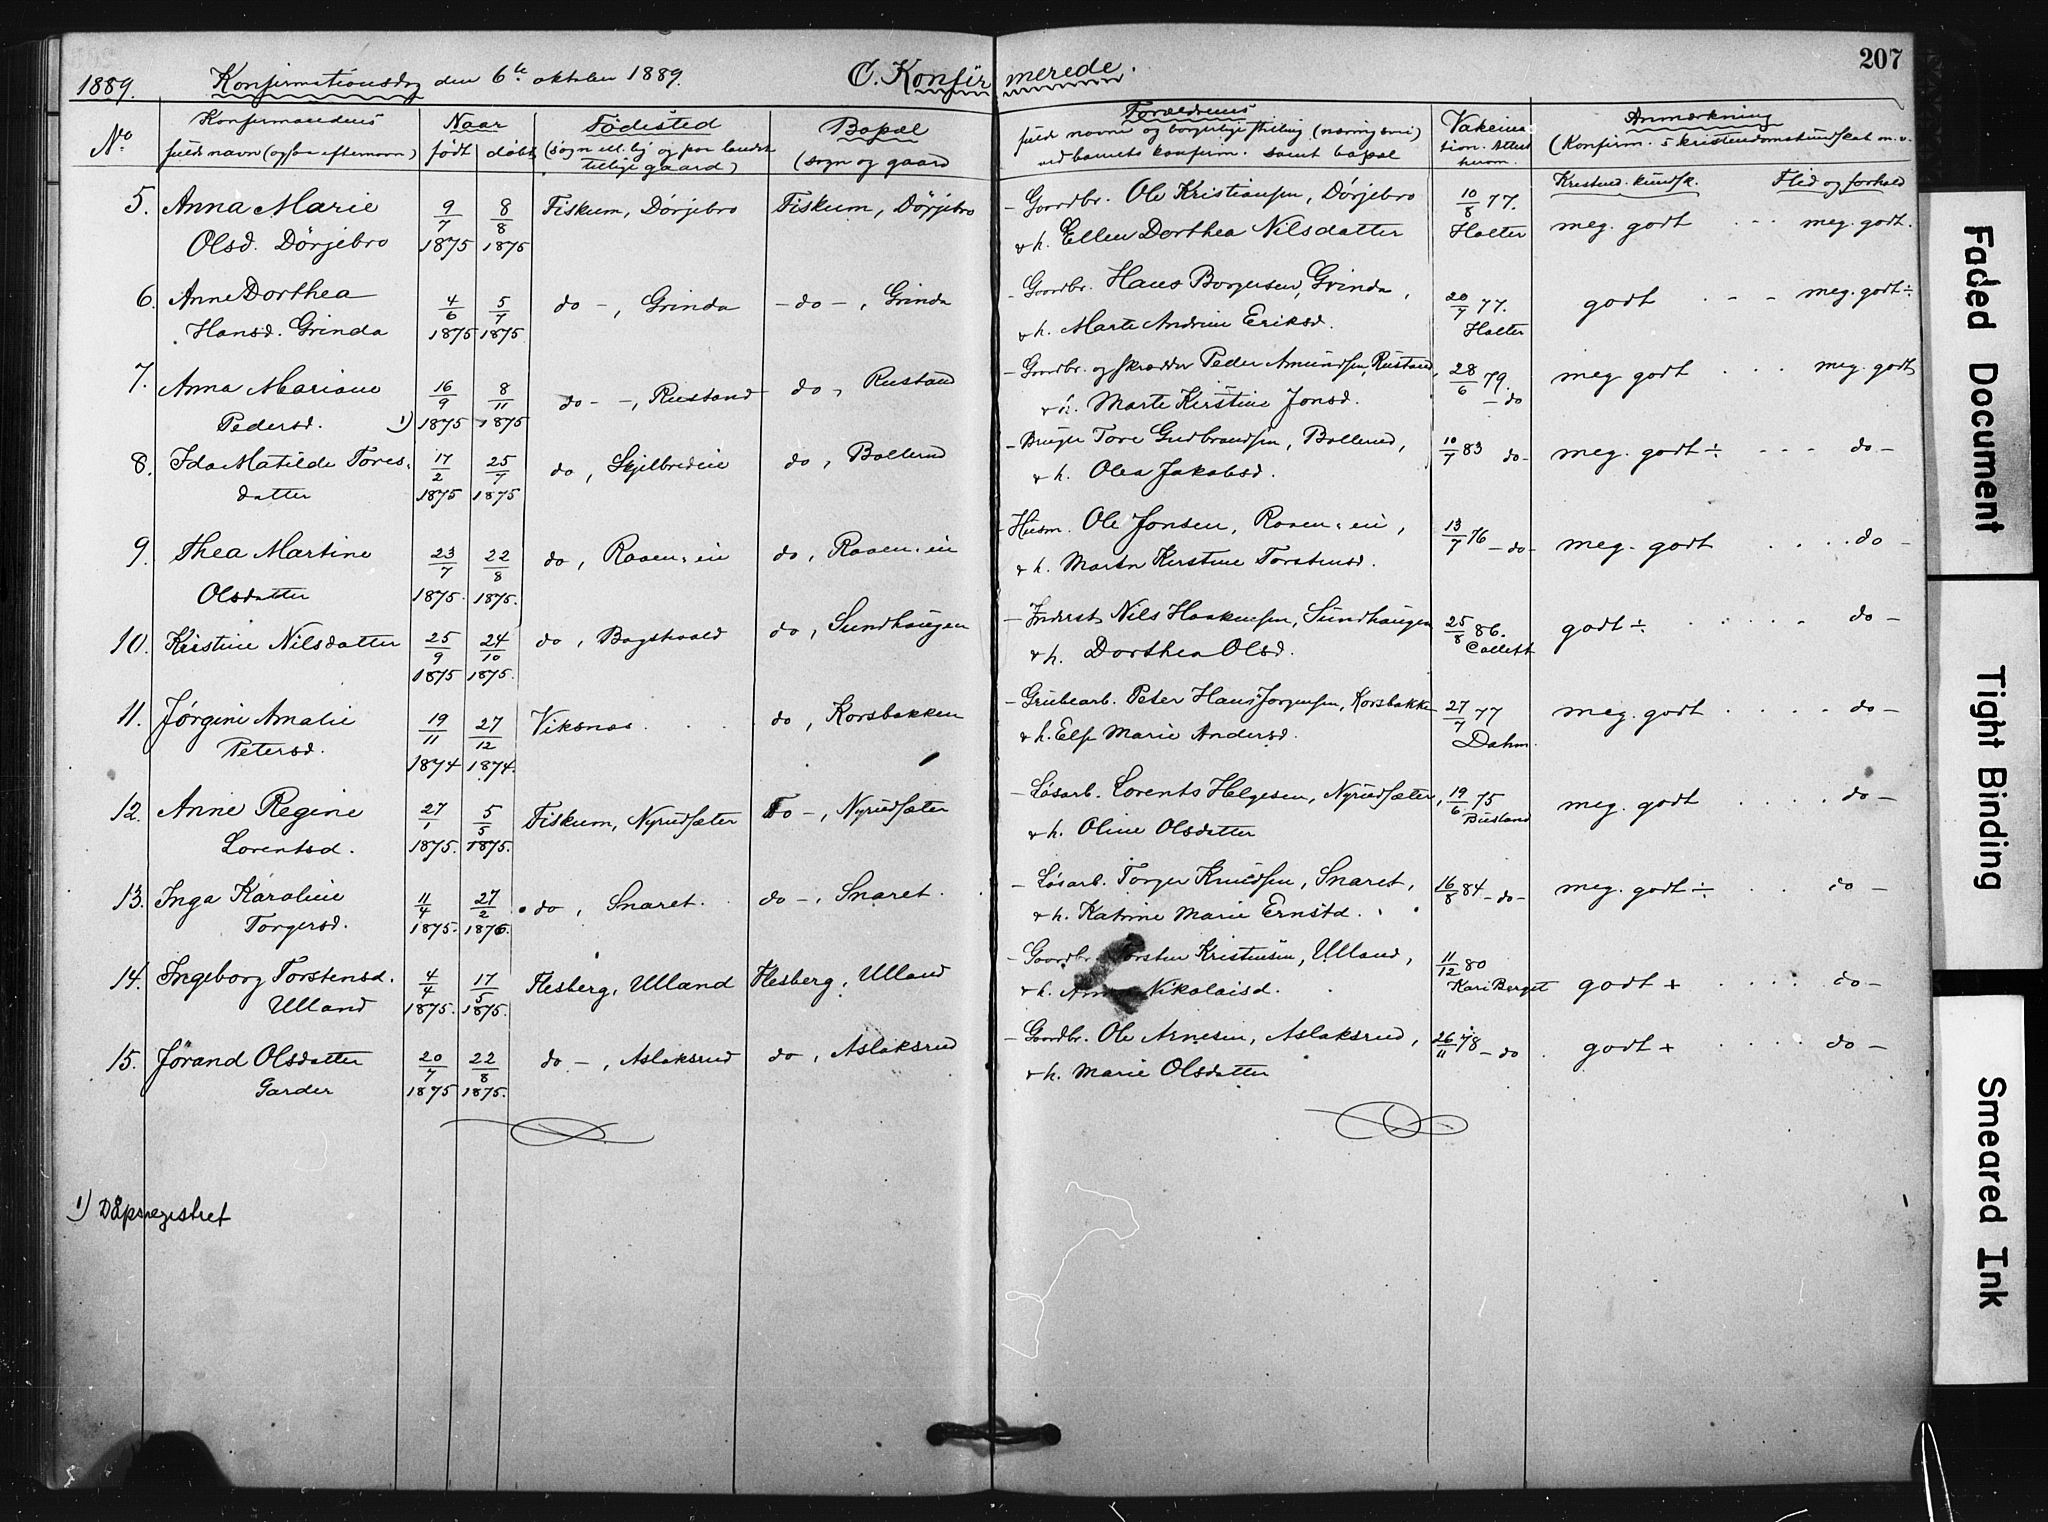 207
1889. Konfirmationsdag den 6te oktober 1889. C. Konfirmerede.
No. Konfirmandens fulde navn (ogsaa efternavn) Naar født døbt Fødested (sogn ell. by og paa landet tillige gaard) Bopæl (sogn og gaard
Forældrenes fulde navne og borgerlige stilling (næringsvei) ved barnets konfirm. samt bopal Vakcination. Attest hvem. Anmærkning (Konfirm. s kristendomskundskab m. v.
Kristend. kundsk. Flid og forhold
5. Anna Marie 9/7 8/8 Fiskum, Dørjebro Fiskum, Dørjebro - Gaardbr. Ole Kristiansen, Dørjebro 10/8 77.
Olsd. Dørjebro 1875 1875 & h. Ellen Dorthea Nilsdatter Holter meg. godt - - meg. godt.
6. Anne Dorthea 4/6 5/7 do -, Grinda - do -, Grinda - Gaardbr. Hans Borgersen, Grinda, 20/7 77. godt - - meg. godt ÷
Hansd. Grinda 1875 1875 & h. Marte Andrine Eriksd. Holter
7. Anna Mariane 16/9 8/11 do - -, Rustand do, Rustand - Gaardbr. og skrædder Peder Amundsen, Rustand, 28/6 79. meg godt . . . meg. godt
Pedersd. 1) 1875 1875 & h. Marte Kirstine Jonsd. - do
8. Ida Matilde Tores- 17/2 25/7 do, Skjelbredeie do, Bollerud - Bruger Tore Gudbrandsen, Bollerud, 10/7 83 do - meg. godt ÷ - - - do -
datter 1875 1875 & h. Olea Jakobsd.
9. Thea Martine 23/7 22/8 do, Raaen-eie do, Raaen-eie - Husm. Ole Jonsen, Raaen-eie, 13/7 76 - do - meg. godt . . . . do -
Olsdatter 1875. 1875. & h. Marta Kirstine Torstensd.
10. Kirstine Nilsdatter 25/9 24/10 do, Bagstvald do, Sundhaugen - Inderst Nils Haakensen, Sundhaugen 25/8 86. godt ÷ . . . . . do -
1875 1875. & h. Dorthea Olsd. Collett
11. Jørgine Amalie 19/11 27/12 Viksnæs . . do, Korsbakken - Grubearb. Peter Hans Jørgensen, Korsbakken 27/7 77 meg. godt . . . . . do -
Petersd. 1874 1874. & h. Else Marie Andersd. Dahm.
12. Anne Regine 27/1 5/5 Fiskum, Nyrudsæter Do -, Nyrudsæter - Løsarb. Lorents Helgesen, Nyrudsæter, 19/6 75 meg. godt . . . . do -
Lorentsd. 1875. 1875. & h. Oline Olsdatter Biesland
13. Inga Karoline 11/4 27/2 do, Snaret. do -, Snaret. - Løsarb. Torger Knudsen, Snaret, 16/8 84 - do - meg. godt ÷ . . do -
Torgersd. 1875. 1876. & h. Katrine Marie Ernstd.
14. Ingeborg Torstensd. 4/4 17/5 Flesberg, Ulland Flesberg, Ulland - Gaardbr. Torsten Kristensen, Ulland, 11/12 80 godt + . . . . do -
Ulland 1875. 1875. & h. Nikolaisd. Kari Berget
15. Jørand Olsdatter 20/7 22/8 do -, Aslaksrud do, Aslaksrud - Gaardbr. Ole Arnesen, Aslaksrud, 26/11 78 - do. godt + . . . . do -
Garder 1875 1875. & h. Marie Olsdatter
1) Dåpsregistret
Faded Document
Tight Binding
Smeared Ink